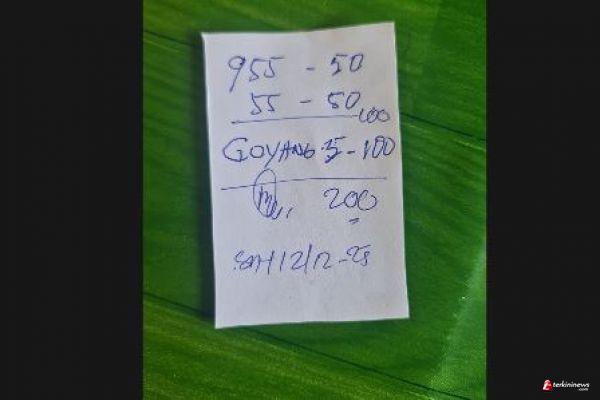 955 - 50
55 - 50
100
GOYANG 5 - 100
200
12/12-25
terkininews
.com